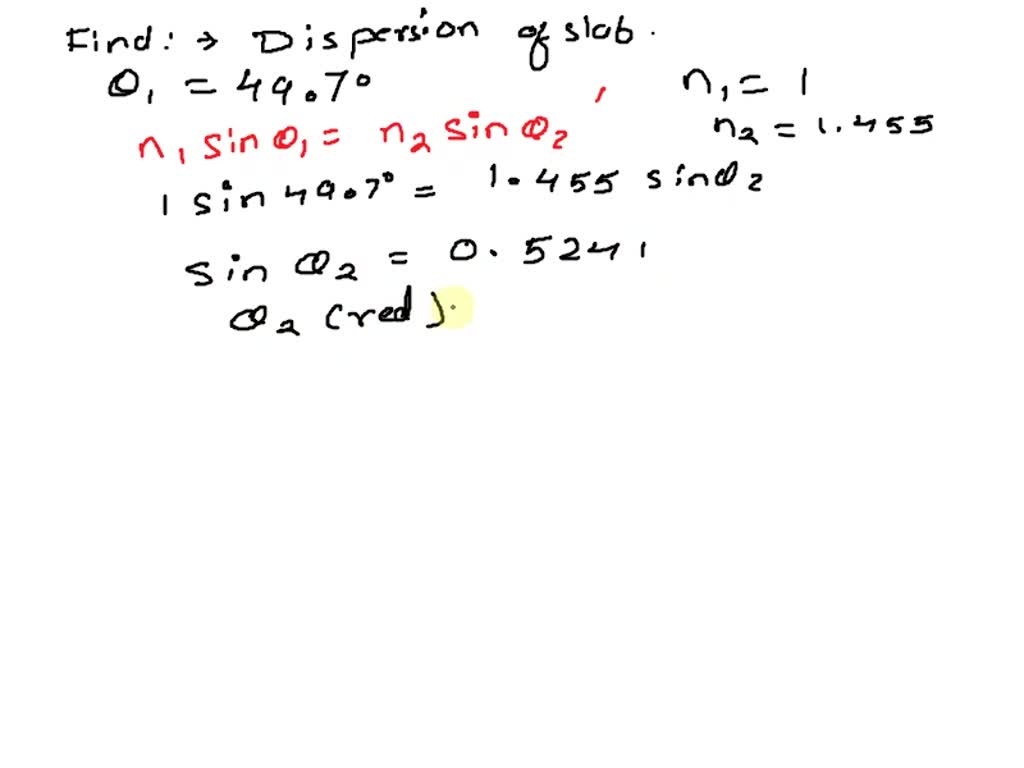 Find: → Dispersion of slab.
θ₁ = 49.7° , n₁ = 1
n₁ sin θ₁ = n₂ sin θ₂ n₂ = 1.455
1 sin 49.7° = 1.455 sin θ₂
sin θ₂ = 0.5241
θ₂ (red).